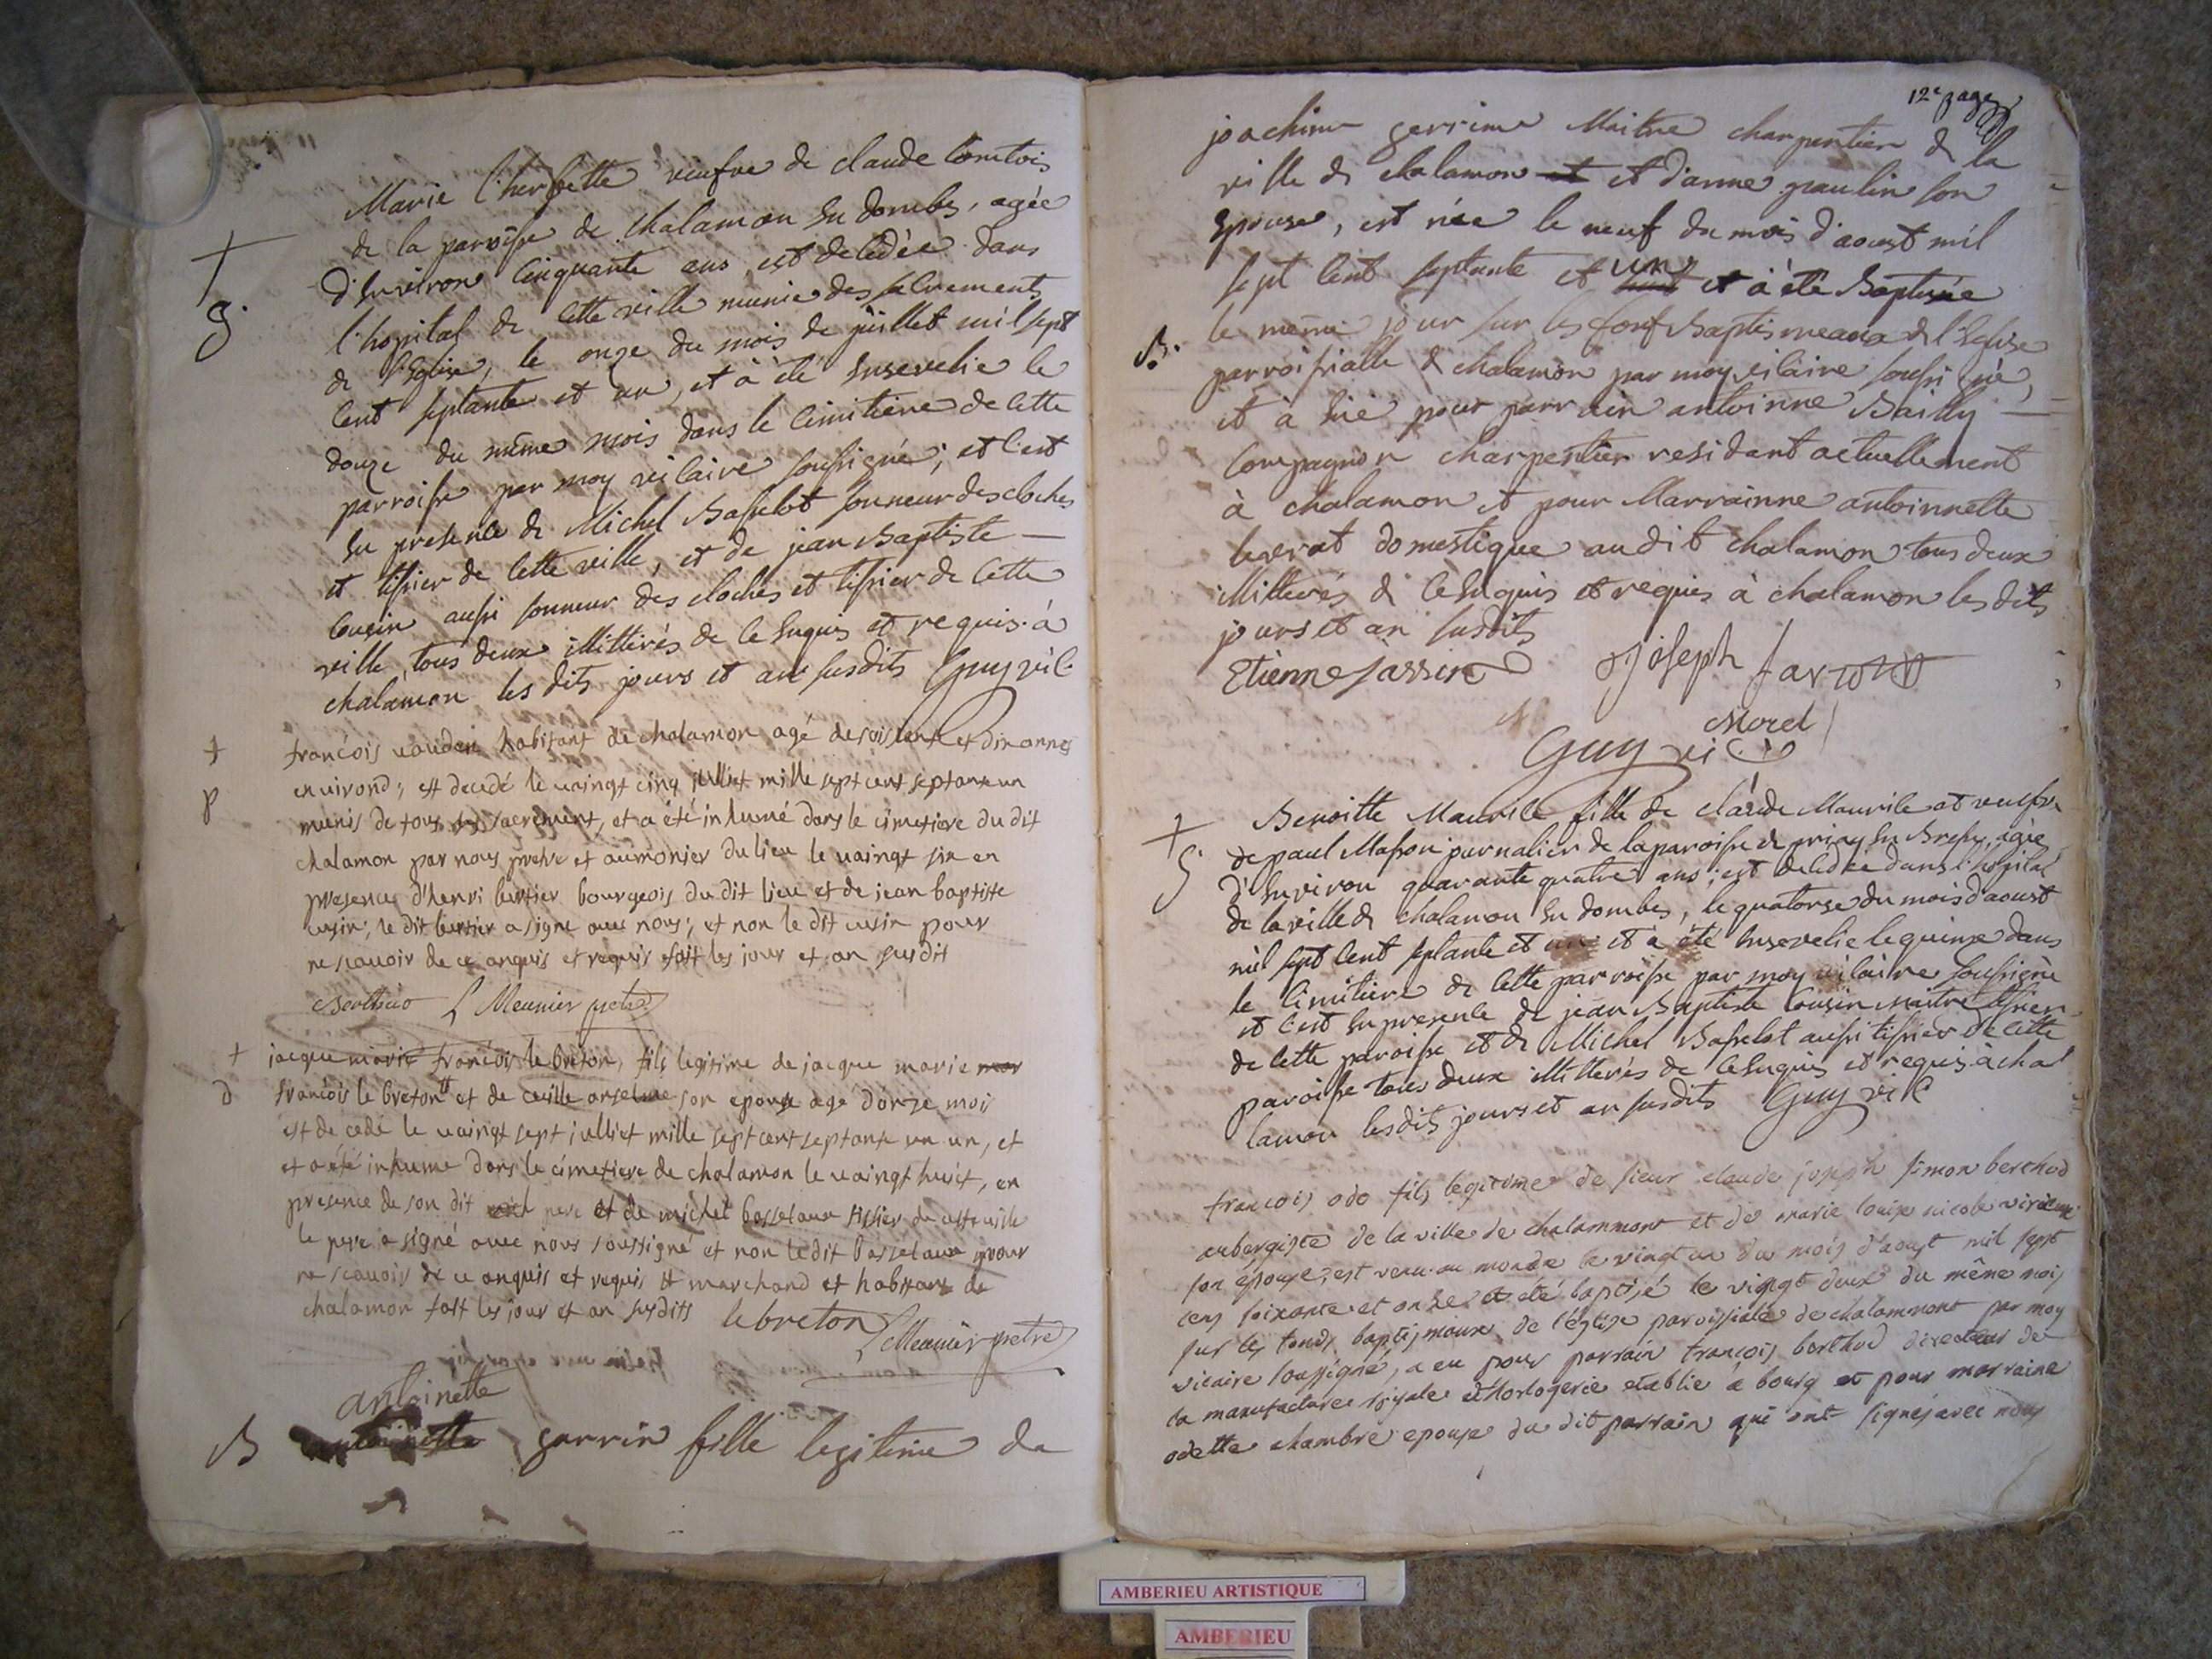 Marie l'herbette veufve de claude Comtois
de la paroisse de chalamon En dombes, agée
d'Environ Cinquante ans, est decedée dans
l'hopital de cette ville munie des sacrements
de l'Eglise, le onze du mois de juillet mil sept
cent septante et un, et à été Ensevelie le
douze du même mois dans le Cimitiere de cette
parroisse par moy vicaire soussigné, et c'est
En presence de Michel Basselot sonneur des cloches
et tissier de cette ville, et de jean Baptiste
Cousin aussi sonneur des cloches et tissier de cette
ville, tous deux illitterés de ce Enquis et requis à
chalamon les dits jours et an susdits Guy vic
g.
françois vaudan habitant de chalamon agé de soissente et dix annes
environd; est decedé le vaingt cinq julliet mille sept cent septante un
munis de tous les sacrement, et a été inhumé dans le cimetiere du dit
chalamon par nous pretre et aumonier du lieu le vaingt six en
presence d'henri bertier bourgeois du dit lieu et de jean baptiste
cusin; le dit bertier a signe avec nous; et non le dit cusin pour
ne scavoir de ce anquis et requis fait les jour et an susdit
p
L Meunier pretre
jacque marie françois le breton, fils legitime de jacque marie mar
françois le breton et de cecille anselme son epouse age d'onze mois
est decedé le vaingt sept julliet mille sept cent septante un un, et
et a été inhume dans le cimetiere de chalamon le vaingt huict, en
presence de son dit pere et de michel basselaux tissier de cette ville
le pere a signé avec nous soussigné et non le dit basselaux pour
ne scavoir de ce anquis et requis et marchand et habitant de
chalamon fait les jour et an susdits lebreton
L Meunier pretre
D
antoinette
B antoinette garrin fille legitime de
12e page
joachim gerrin Maitre charpentier de la
ville de chalamon et et d'anne paulin son
Epouse, est née le neuf du mois d'aoust mil
sept cent septante et un et à été Baptisée
le même jour sur les fonts Baptismeaux de l'Eglise
parroissialle de chalamon par moy vicaire soussigné,
et à Eüe pour parrain antoinne Bailly
Compagnon charpentier residant actuellement
à chalamon et pour Marrainne antoinnette
legerat domestique audit chalamon tous deux
illitterés de ce Enquis et requis à chalamon les dits
jours et an susdits
B.
Etienne Jassin Joseph
Morel
Guy vic
Benoitte Maurice fille de claude Maurice et veufve
de paul Masson journalier de la paroisse de priay En Bresse, agée
d'Environ quarante quatre ans; est decedée dans l'hopital
de la ville de chalamon En dombes, le quatorse du mois d'aoust
mil sept cent septante et un et à été Ensevelie le quinze dans
le Cimitiere de cette parroisse par moy vicaire soussigné
et c'est En presence de jean Baptiste Cousin maitre tissier
de cette paroisse et de Michel Basselot aussi tissier de cette
paroisse tous deux illitterés de ce Enquis et requis à cha
lamon les dits jours et an susdits Guy vic
françois odo fils légitime de sieur claude joseph simon berthod
aubergiste de la ville de chalammont et de marie louise nicole
son épouse, est venu au monde le vingt un du mois d'aoust mil sept
cens soixante et onze et été baptisé le vingt deux du même mois
sur les fonds baptismaux de l'église paroissiale de chalammont par moy
vicaire soussigné, a eu pour parrain françois berthod directeur de
la manufacture royale d'horlogerie etablie à bourg et pour marraine
odette chambre epouse du dit parrain qui ont signés avec nous
AMBERIEU ARTISTIQUE
AMBERIEU